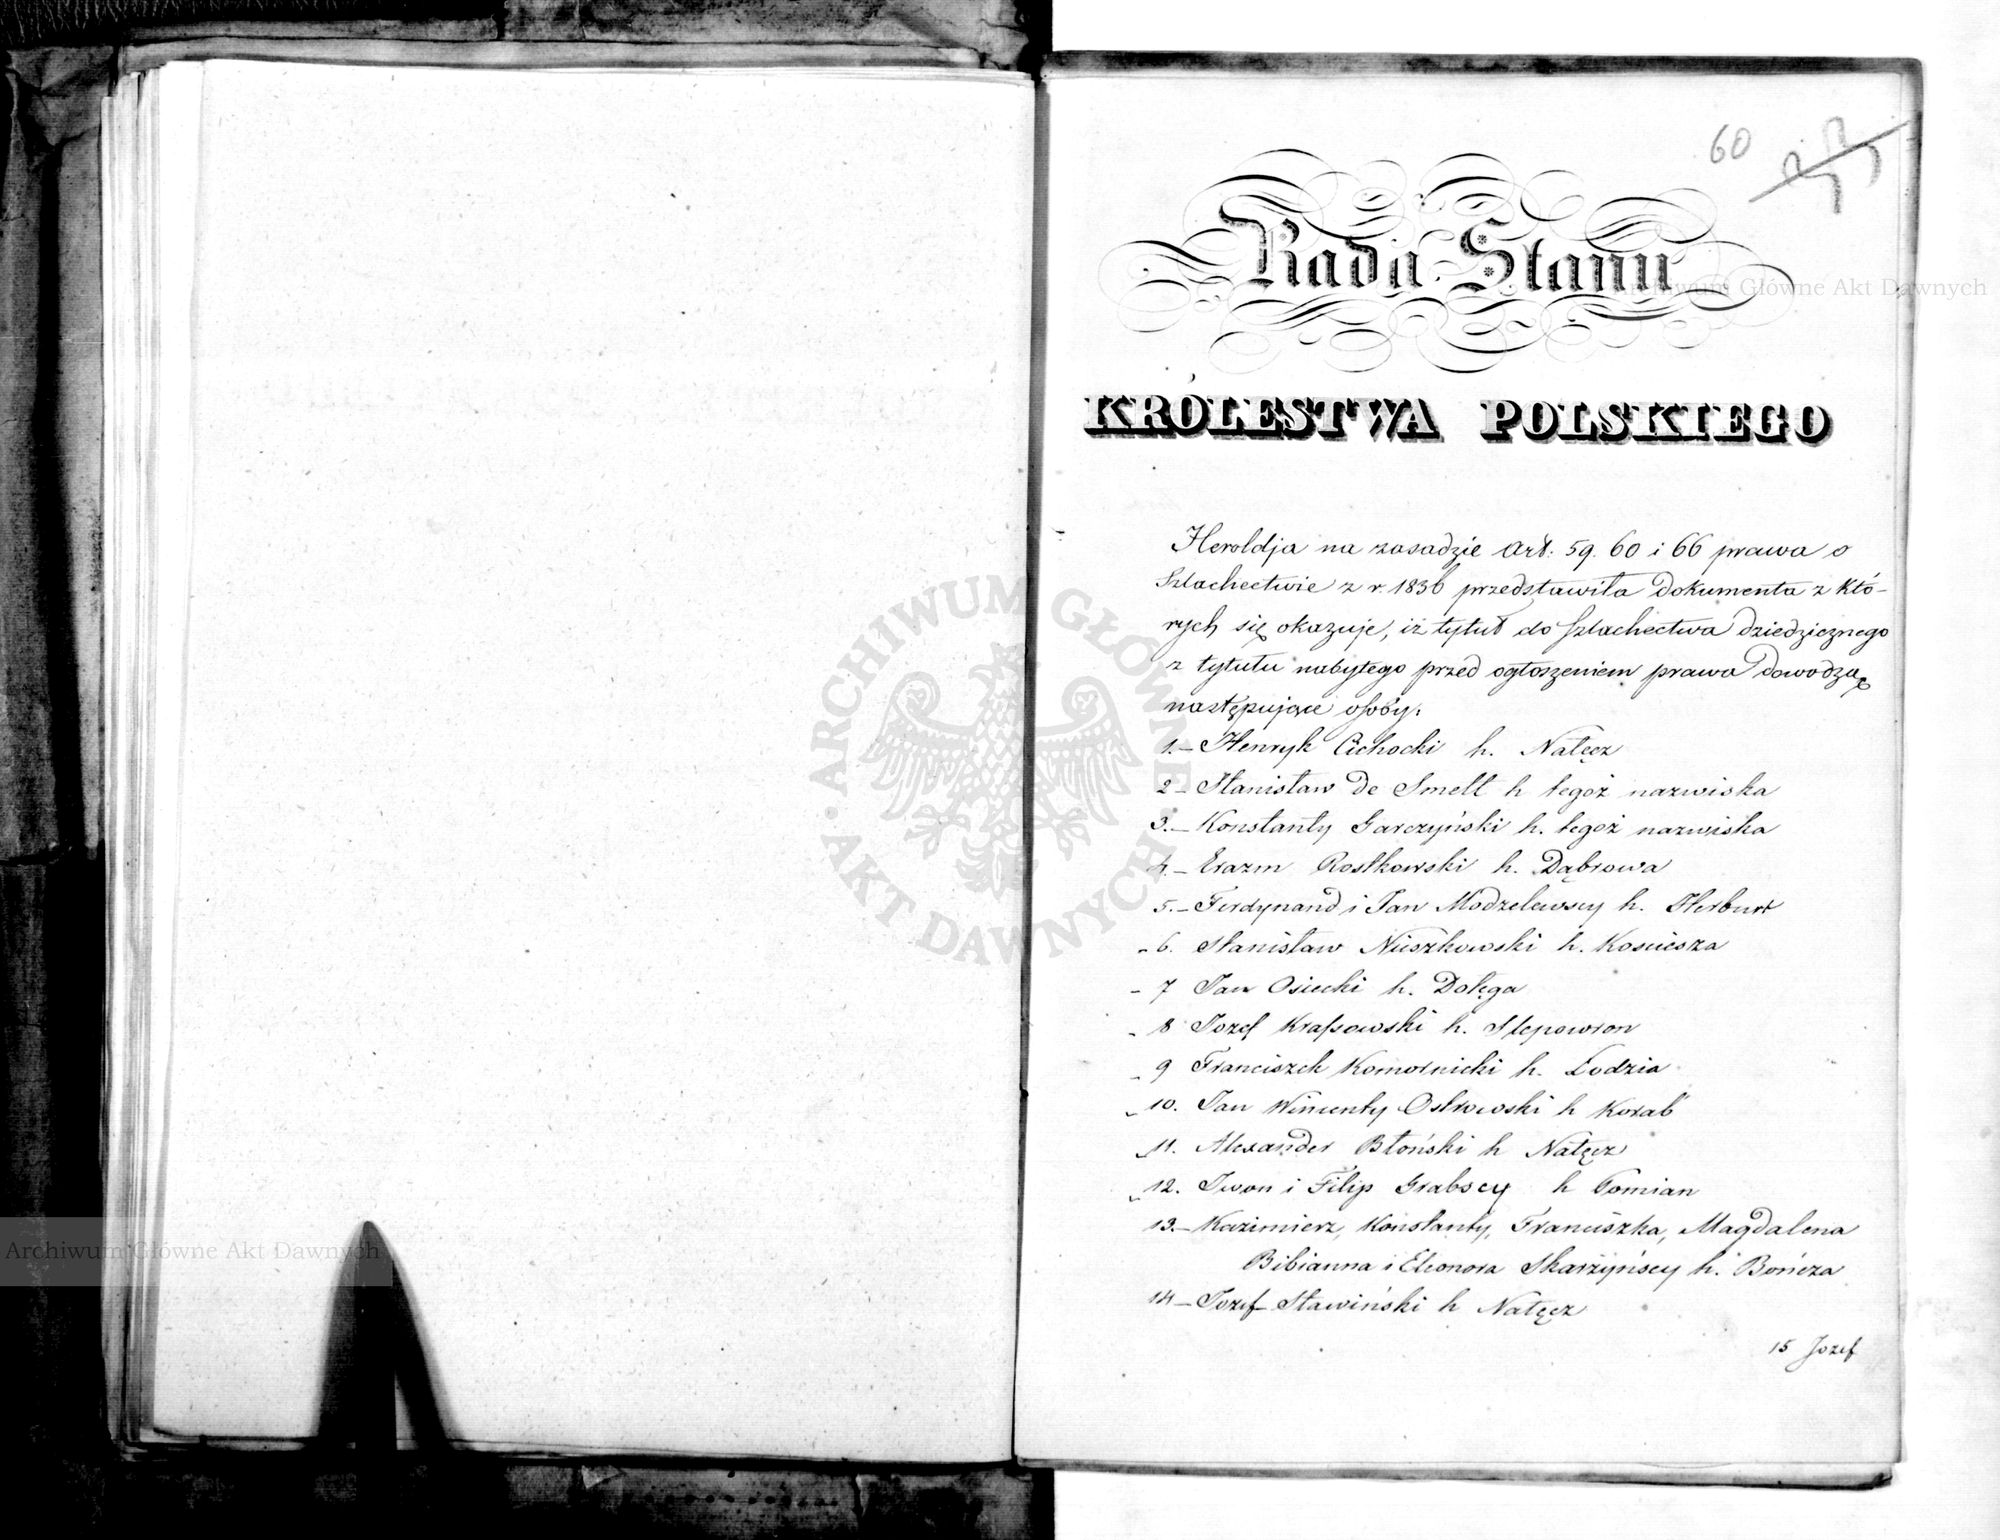 60
Rada Stanu
KRÓLESTWA POLSKIEGO
Heroldja na zasadzie Art: 59. 60 i 66 prawa o
Szlachectwie z r. 1836 przedstawiła Dokumenta z któ-
rych się okazuje, iż tytuł do szlachectwa dziedzicznego
z tytułu nabytego przed ogłoszeniem prawa dowodzą
następujące osoby:
1.- Henryk Cichocki h. Nałęcz
2- Stanisław de Smett h tegoż nazwiska
3.- Konstanty Garczyński h. tegoż nazwiska
4.- Erazm Rostkowski h. Dąbrowa
5.- Ferdynand i Jan Modzelewscy h. Herburt
-6. Stanisław Niuszkowski h. Kościesza
- 7 Jan Osiecki h. Dołęga
- 8 Jozef Krassowski h. Slepowron
- 9 Franciszek Komornicki h. Łodzia
-10. Jan Wincenty Ostrowski h Korab
-11. Alexander Błoński h Nałęcz
-12. Iwon i Filip Grabscy h Pomian
13.- Kazimierz, Konstanty, Franciszka, Magdalena
Bibianna i Eleonora Skarżyńscy h. Bończa
14- Jozef Sławiński h Nałęcz
15 Jozef
Archiwum Główne Akt Dawnych
Archiwum Główne Akt Dawnych
ARCHIWUM GŁÓWNE · AKT DAWNYCH ·